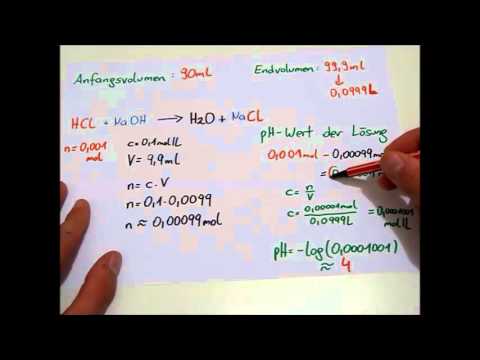 Anfangsvolumen: 90ml
Endvolumen: 99,9ml
↓
0,0999L
HCL + NaOH → H2O + NaCl
n=0,001 mol
c=0,1mol/L
V = 9,9ml
n = c · V
n = 0,1 · 0,0099
n ≈ 0,00099mol
pH-Wert der Lösung
0,001mol - 0,00099mol
=
c = n/V
c = 0,00001mol/0,0999L = 0,0001001 mol/L
pH = -log(0,0001001)
≈ 4